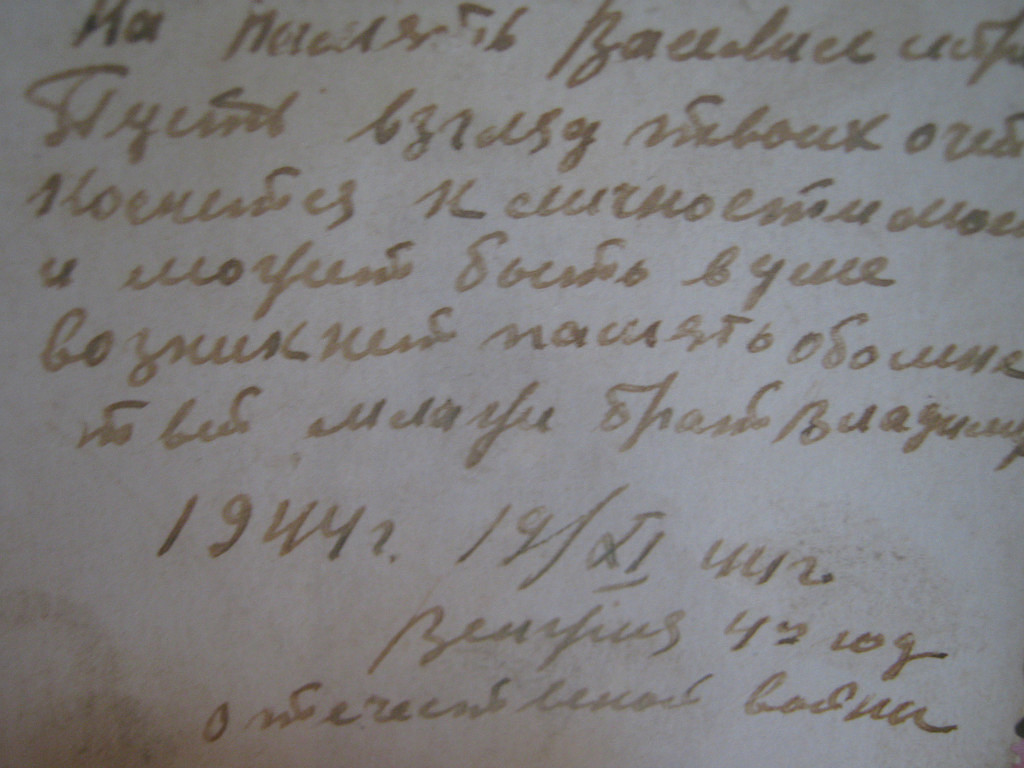 На память Василию
Пусть взгляд твоих очей
коснется к личности моей
и можит быть в уме
возникнет память обо мне
твой млажи брат Владимир
1944 г. 19/XI 44 г.
Венгрия 4й год
отечественой войны